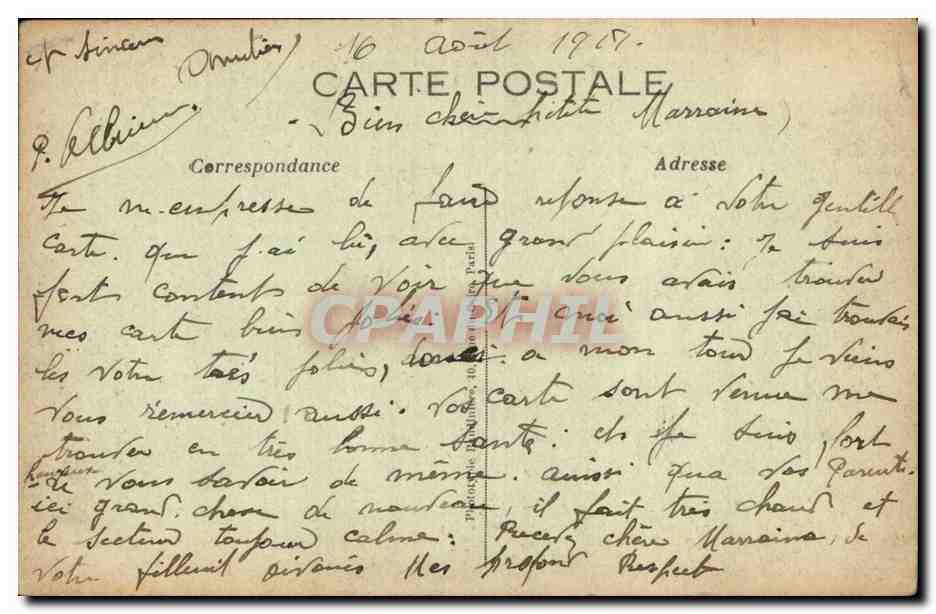 16 Août 191
CARTE POSTALE
Bien chère petite Marraine
Correspondance
Adresse
Je m-empresse de faire reponse à votre gentille
carte. que j.ai lu, avec grand plaisir: Je suis
fort contents de voir que vous avais trouver
mes carte bien jolies. Et moi aussi j'ai trouvais
les votre très jolies, à mon tour je viens
vous remercier aussi. vos carte sont venue me
trouver en très bonne santé: et je suis fort
heureux
de vous savoir de même. aussi que vos Parents.
ici grand.chose de nouveau, il fait très chaud et
le secteur toujour calme: Recevez chère Marraine, de
votre filleul Mes profond Respect
P. Albien.
CPAPHIL